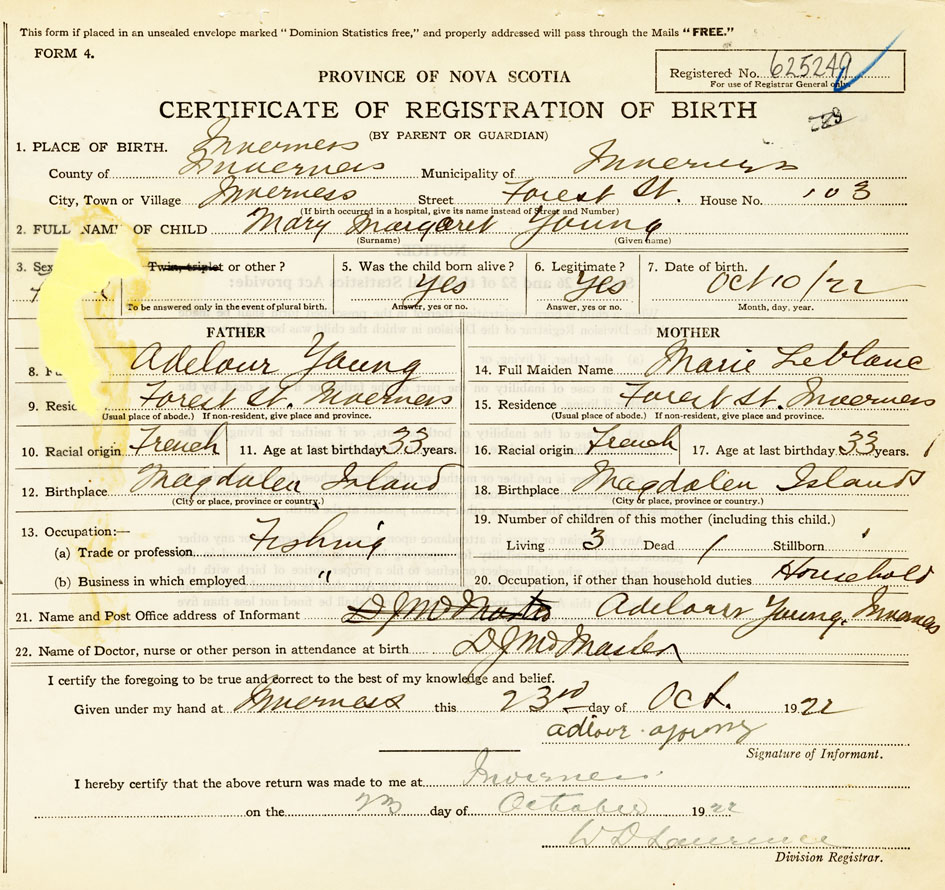 This form if placed in an unsealed envelope marked "Dominion Statistics free," and properly addressed will pass through the Mails "FREE."
FORM 4.
Registered No. 625249
For use of Registrar General only.
PROVINCE OF NOVA SCOTIA
CERTIFICATE OF REGISTRATION OF BIRTH
729
(BY PARENT OR GUARDIAN)
1. PLACE OF BIRTH. Inverness
County of Inverness Municipality of Inverness
City, Town or Village Inverness Street Forest St. House No. 103
(If birth occurred in a hospital, give its name instead of Street and Number)
2. FULL NAME OF CHILD Mary Margaret Young
(Surname) (Given name)
3. Sex Twin, triplet or other? 5. Was the child born alive? 6. Legitimate? 7. Date of birth.
Yes Yes Oct 10/22
To be answered only in the event of plural birth. Answer, yes or no. Answer, yes or no. Month, day, year.
FATHER MOTHER
8. Adelour Young 14. Full Maiden Name Marie Leblanc
9. Resid Forest St. Inverness 15. Residence Forest St. Inverness
(Usual place of abode.) If non-resident, give place and province. (Usual place of abode.) If non-resident, give place and province.
10. Racial origin French 11. Age at last birthday 33 years. 16. Racial origin French 17. Age at last birthday 33 years.
12. Birthplace Magdalen Island 18. Birthplace Magdalen Islands
(City or place, province or country.) (City or place, province or country.)
13. Occupation:— 19. Number of children of this mother (including this child.)
(a) Trade or profession Fishing Living 3 Dead / Stillborn
(b) Business in which employed " 20. Occupation, if other than household duties Household
21. Name and Post Office address of Informant D J McMaster Adelour Young, Inverness
22. Name of Doctor, nurse or other person in attendance at birth D J McMaster
I certify the foregoing to be true and correct to the best of my knowledge and belief.
Given under my hand at Inverness this 23rd day of Oct. 1922
Signature of Informant.
I hereby certify that the above return was made to me at Inverness
on the 23 day of October 1922
W D Lawrence
Division Registrar.